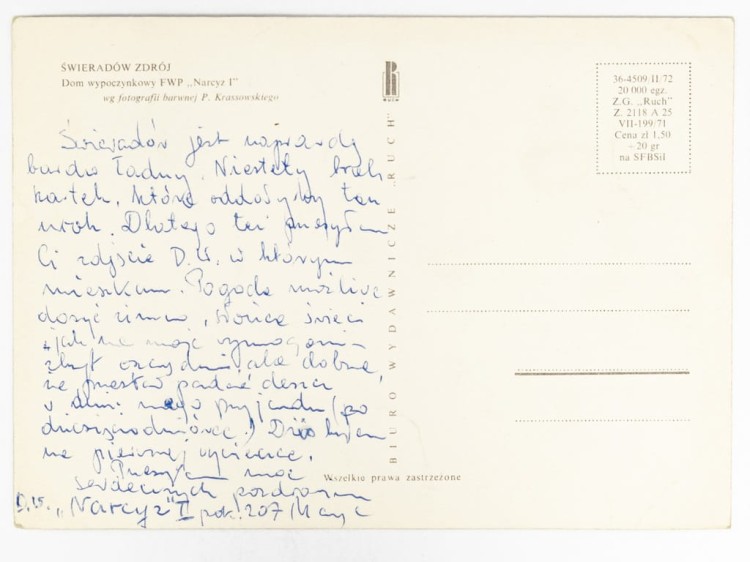 ŚWIERADÓW ZDRÓJ
Dom wypoczynkowy FWP „Narcyz I"
wg fotografii barwnej P. Krassowskiego
Świeradów jest naprawdę
bardzo ładny. Niestety brak
kartek, które oddałyby ten
urok. Dlatego też przesyłam
Ci zdjęcie D.W. w którym
mieszkam. Pogoda możliwa
dosyć zimno, słońce świeci
jak na moje wymagania
zbyt oszczędnie, ale dobrze,
że przestał padać deszcz
w dniu mego przyjazdu (po
) Dziś byłam
na pierwszej wycieczce.
Przesyłam moc
serdecznych pozdrowień
D.W. „Narcyz" I pok. 207
BIURO WYDAWNICZE „RUCH"
RUCH
36-4509/II/72
20 000 egz.
Z.G. „Ruch"
Z. 2118 A 25
VII-199/71
Cena zł 1,50
– 20 gr
na SFBSiI
Wszelkie prawa zastrzeżone